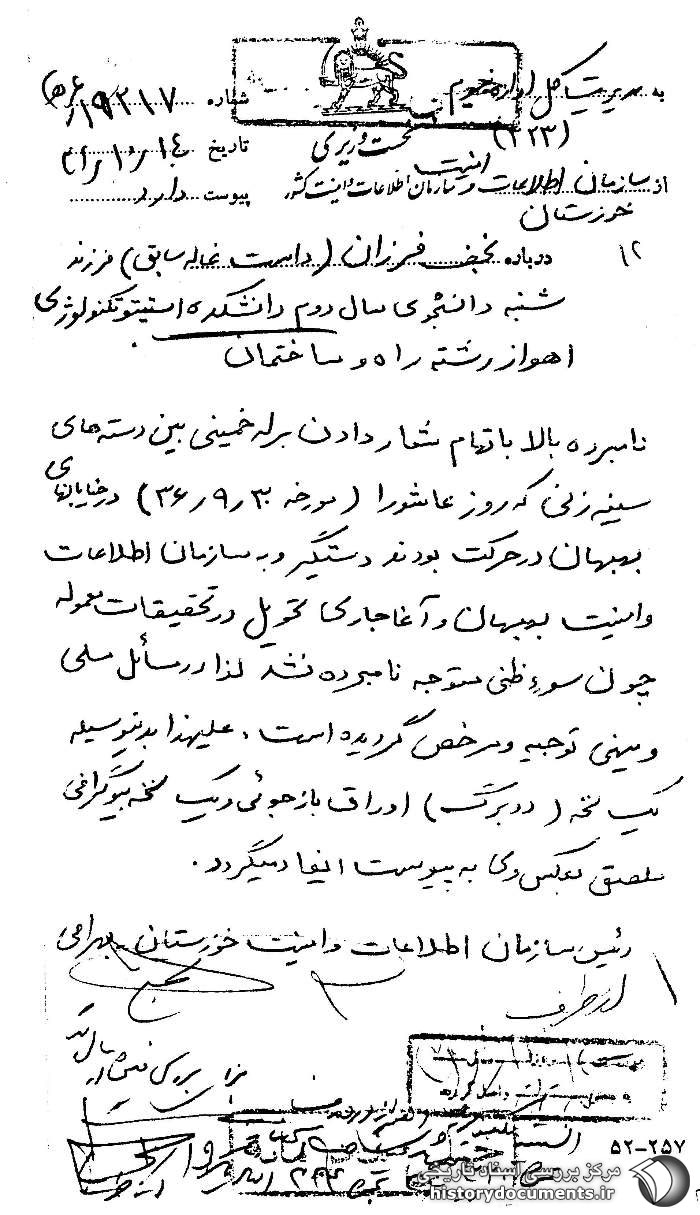 به مدیریت کل اداره سوم
(۳۲۳)
شماره ۱۹۳۱۷/ه‍۶
نخست وزیری
تاریخ
از سازمان اطلاعات و امنیت
سازمان اطلاعات و امنیت کشور
خوزستان
پیوست دارد
۱۲
درباره نجف فرزان (داست غاله سابق) فرزند
شنبه دانشجوی سال دوم دانشکده انستیتو تکنولوژی
اهواز رشته راه و ساختمان
نامبرده بالا باتهام شعار دادن برله خمینی بین دسته های
سینه زنی که روز عاشورا (مورخه ۳۶/۹/۳۰) در خیابانهای
بهبهان در حرکت بودند دستگیر و به سازمان اطلاعات
وامنیت بهبهان و آغاجاری تحویل در تحقیقات معموله
چون سوءظنی متوجه نامبرده نشد لذا در مسائل ملی
و میهنی توجیه و مرخص گردیده است. علیهذا بدینوسیله
یک نسخه (دو برگ) اوراق بازجوئی و یک نسخه بیوگرافی
ملصق بعکس وی به پیوست ایفاد میگردد.
رئیس سازمان اطلاعات وامنیت خوزستان. بهرامی
از طرف
۵۲-۲۵۷
مرکز بررسی اسناد تاریخی
historydocuments.ir